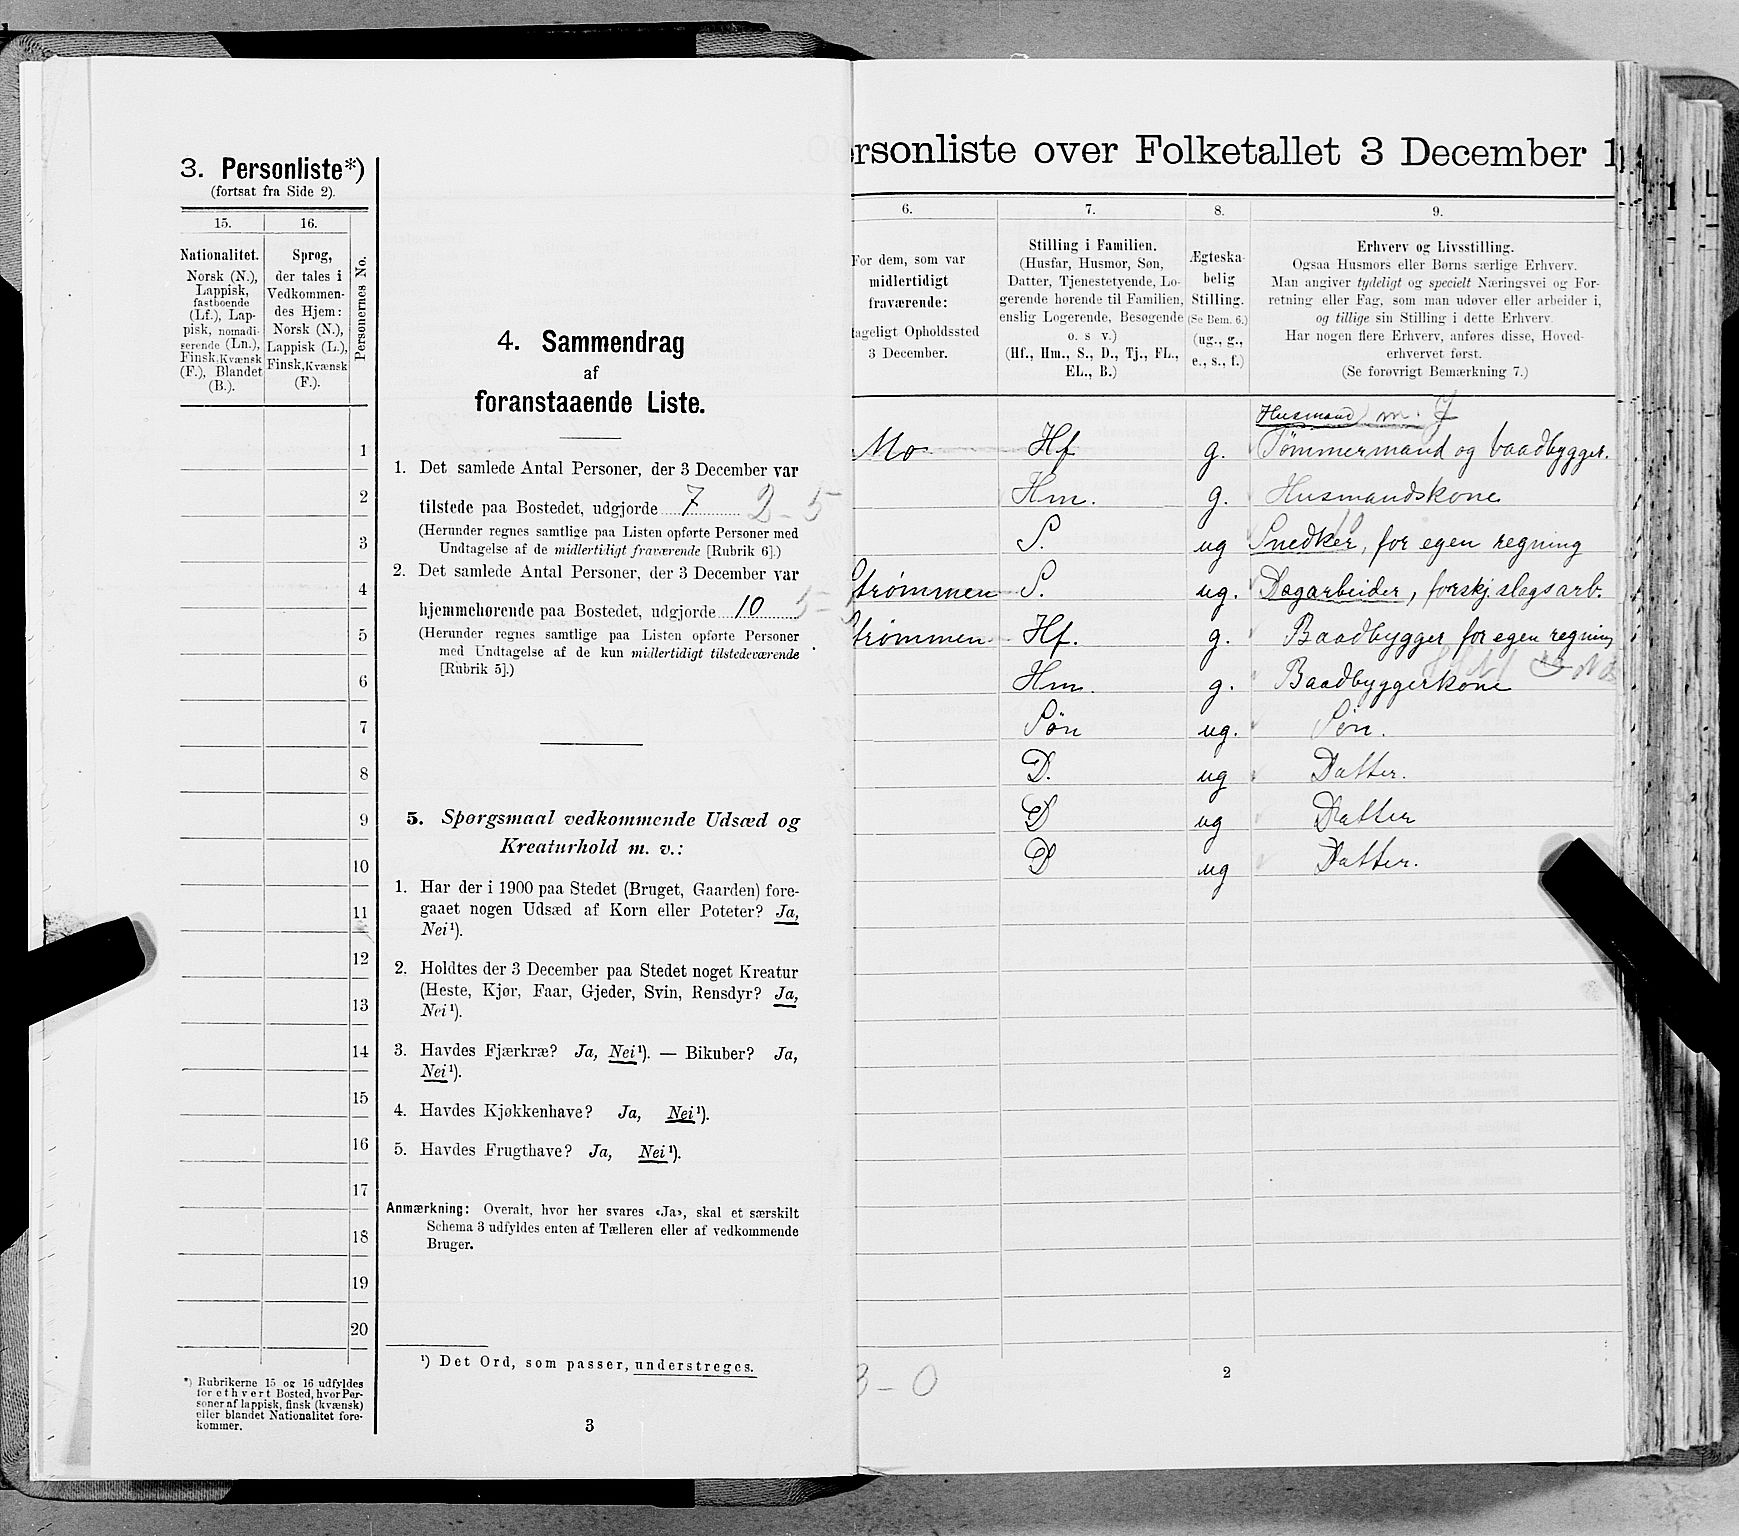 3. Personliste*)
(fortsat fra Side 2).
15.
16.
Personernes No.
Nationalitet.
Norsk (N.),
Lappisk,
fastboende
(Lf.), Lap-
pisk, nomadi-
serende (Ln.),
Finsk, Kvænsk
(F.), Blandet
(B.).
Sprog,
der tales i
Vedkommen-
des Hjem:
Norsk (N.),
Lappisk (L.),
Finsk, Kvænsk
(F.).
1
2
3
4
5
6
7
8
9
10
11
12
13
14
15
16
17
18
19
20
*) Rubrikerne 15 og 16 udfyldes
for ethvert Bosted, hvor Per-
soner af lappisk, finsk (kvænsk)
eller blandet Nationalitet fore-
kommer.
4. Sammendrag
af
foranstaaende Liste.
1. Det samlede Antal Personer, der 3 December var
tilstede paa Bostedet, udgjorde 7 2-5
(Herunder regnes samtlige paa Listen opførte Personer med
Undtagelse af de midlertidigt fraværende [Rubrik 6].)
2. Det samlede Antal Personer, der 3 December var
hjemmehørende paa Bostedet, udgjorde 10 5-
(Herunder regnes samtlige paa Listen opførte Personer
med Undtagelse af de kun midlertidigt tilstedeværende
[Rubrik 5].)
5. Spørgsmaal vedkommende Udsæd og
Kreaturhold m. v.:
1. Har der i 1900 paa Stedet (Bruget, Gaarden) fore-
gaaet nogen Udsæd af Korn eller Poteter? Ja,
Nei¹).
2. Holdtes der 3 December paa Stedet noget Kreatur
(Heste, Kjør, Faar, Gjeder, Svin, Rensdyr? Ja,
Nei¹).
3. Havdes Fjærkræ? Ja, Nei¹). — Bikuber? Ja,
Nei¹).
4. Havdes Kjøkkenhave? Ja, Nei¹).
5. Havdes Frugthave? Ja, Nei¹).
Anmærkning: Overalt, hvor her svares «Ja», skal et særskilt
Schema 3 udfyldes enten af Tælleren eller af vedkommende
Bruger.
¹) Det Ord, som passer, understreges.
3
ersonliste over Folketallet 3 December 1
6.
7.
8.
9.
For dem, som var
midlertidigt
fraværende:
ageligt Opholdssted
3 December.
Stilling i Familien.
(Husfar, Husmor, Søn,
Datter, Tjenestetyende, Lo-
gerende hørende til Familien,
enslig Logerende, Besøgende
o. s v.)
(Hf., Hm., S., D., Tj., FL.,
EL., B.)
Ægteska-
belig
Stilling.
(Se Bem. 6.)
(ug., g.,
e., s., f.)
Erhverv og Livsstilling.
Ogsaa Husmors eller Børns særlige Erhverv.
Man angiver tydeligt og specielt Næringsvei og For-
retning eller Fag, som man udøver eller arbeider i,
og tillige sin Stilling i dette Erhverv.
Har nogen flere Erhverv, anføres disse, Hoved-
erhvervet først.
(Se forøvrigt Bemærkning 7.)
Husmand m. J
Mo Hf g. Tømmermand og baadbygger.
Hm. g. Husmandskone
S. ug Snedker, for egen regning
Strømmen S. ug. Dagarbeider, forskj. slags arb.
Strømmen Hf. g. Baadbygger for egen regning
Hm. g. Baadbyggerkone
Søn ug. Søn.
D. ug Datter.
D ug Datter
D ug Datter.
3-0
2